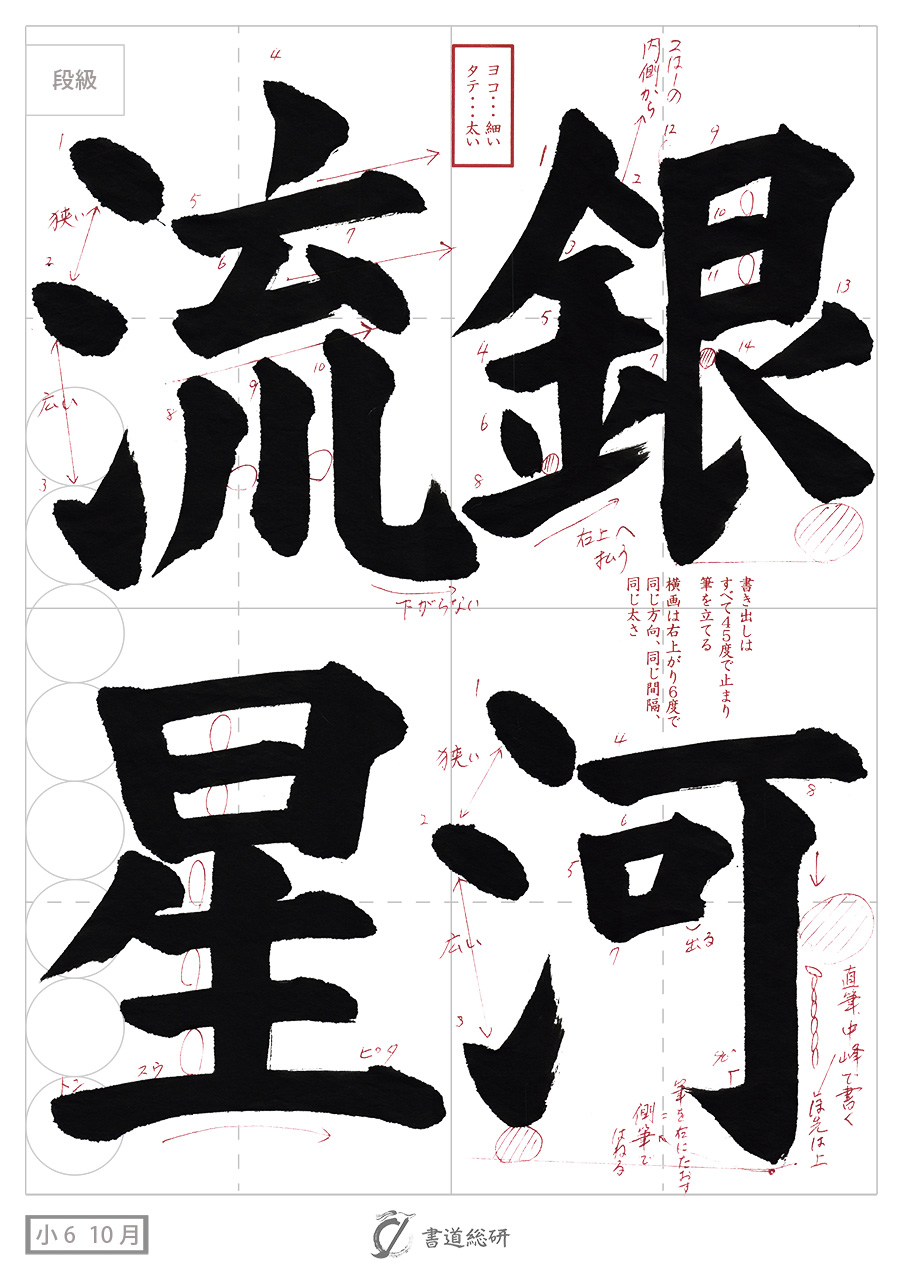 銀河
流星
段級
ヨコ・・・細い
タテ・・・太い
2は1の
内側から
狭い
広い
右上へ
払う
下がらない
書き出しは
すべて45度で止まり
筆を立てる
横画は右上がり6度で
同じ方向、同じ間隔、
同じ太さ
狭い
広い
出る
直筆中峰で書く
ほ先は上
筆を右にたおす
側筆で
はねる
トン
スウ
ピタ
小6 10月
書道総研